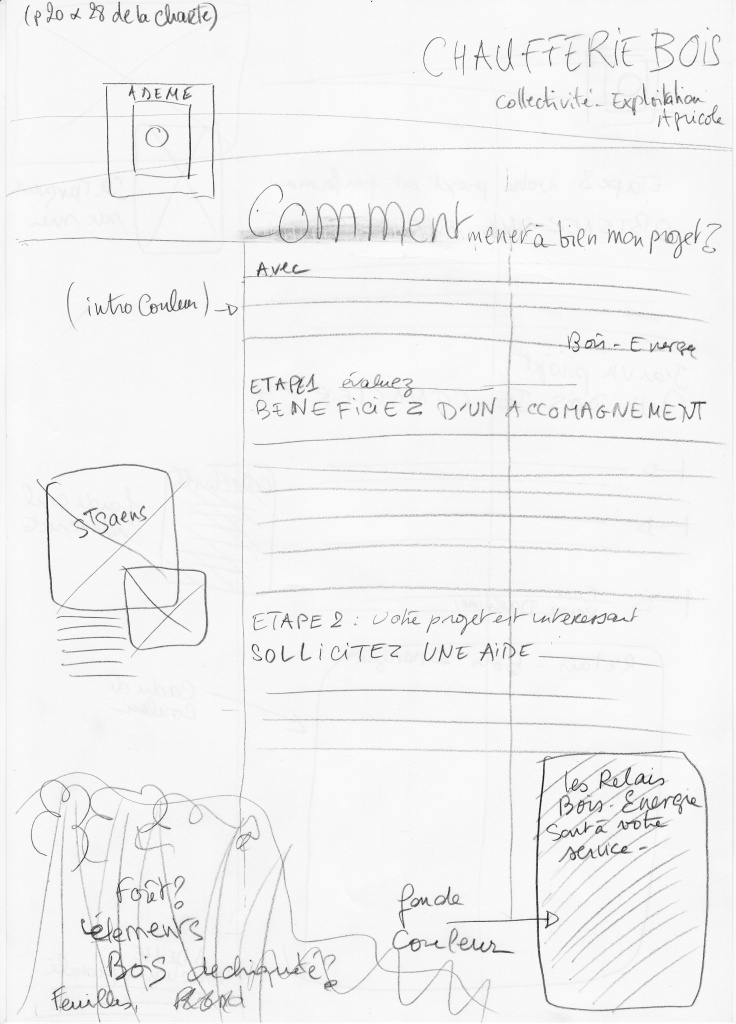 (p 20 & 28 de la charte)
CHAUFFERIE BOIS
Collectivité - Exploitation
Agricole
ADEME
Comment mener à bien mon projet?
Avec
(intro Couleur)
Bois - Energie
ETAPE 1 évaluez
BENEFICIEZ D'UN ACCOMAGNEMENT
St Saens
ETAPE 2 : votre projet est interessant
SOLLICITEZ UNE AIDE
les Relais
Bois - Energie
Sont à votre
service -
Forêt?
élements
Bois dechiqueté?
Feuilles,
fon de
Couleur